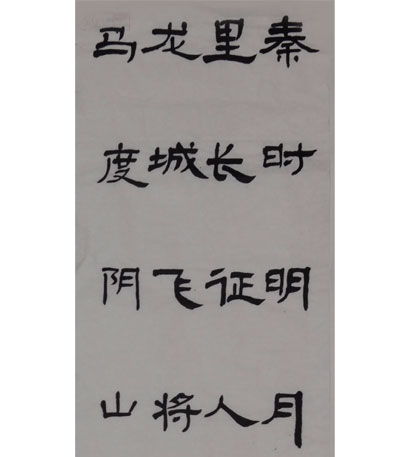 秦时明月
里长征人
龙城飞将
马度阴山